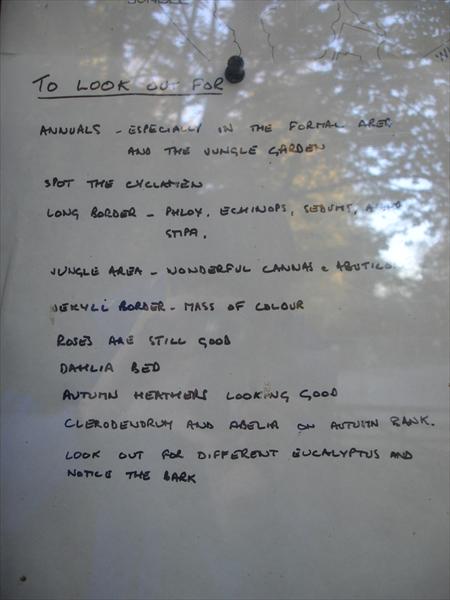 JUNGLE
TO LOOK OUT FOR
ANNUALS - ESPECIALLY IN THE FORMAL AREA
AND THE JUNGLE GARDEN
SPOT THE CYCLAMEN
LONG BORDER - PHLOX, ECHINOPS, SEDUMS, AND
STIPA.
JUNGLE AREA - WONDERFUL CANNAS & ABUTILO
JEKYLL BORDER - MASS OF COLOUR
ROSES ARE STILL GOOD
DAHLIA BED
AUTUMN HEATHERS LOOKING GOOD
CLERODENDRUM AND ABELIA ON AUTUMN BANK.
LOOK OUT FOR DIFFERENT EUCALYPTUS AND
NOTICE THE BARK